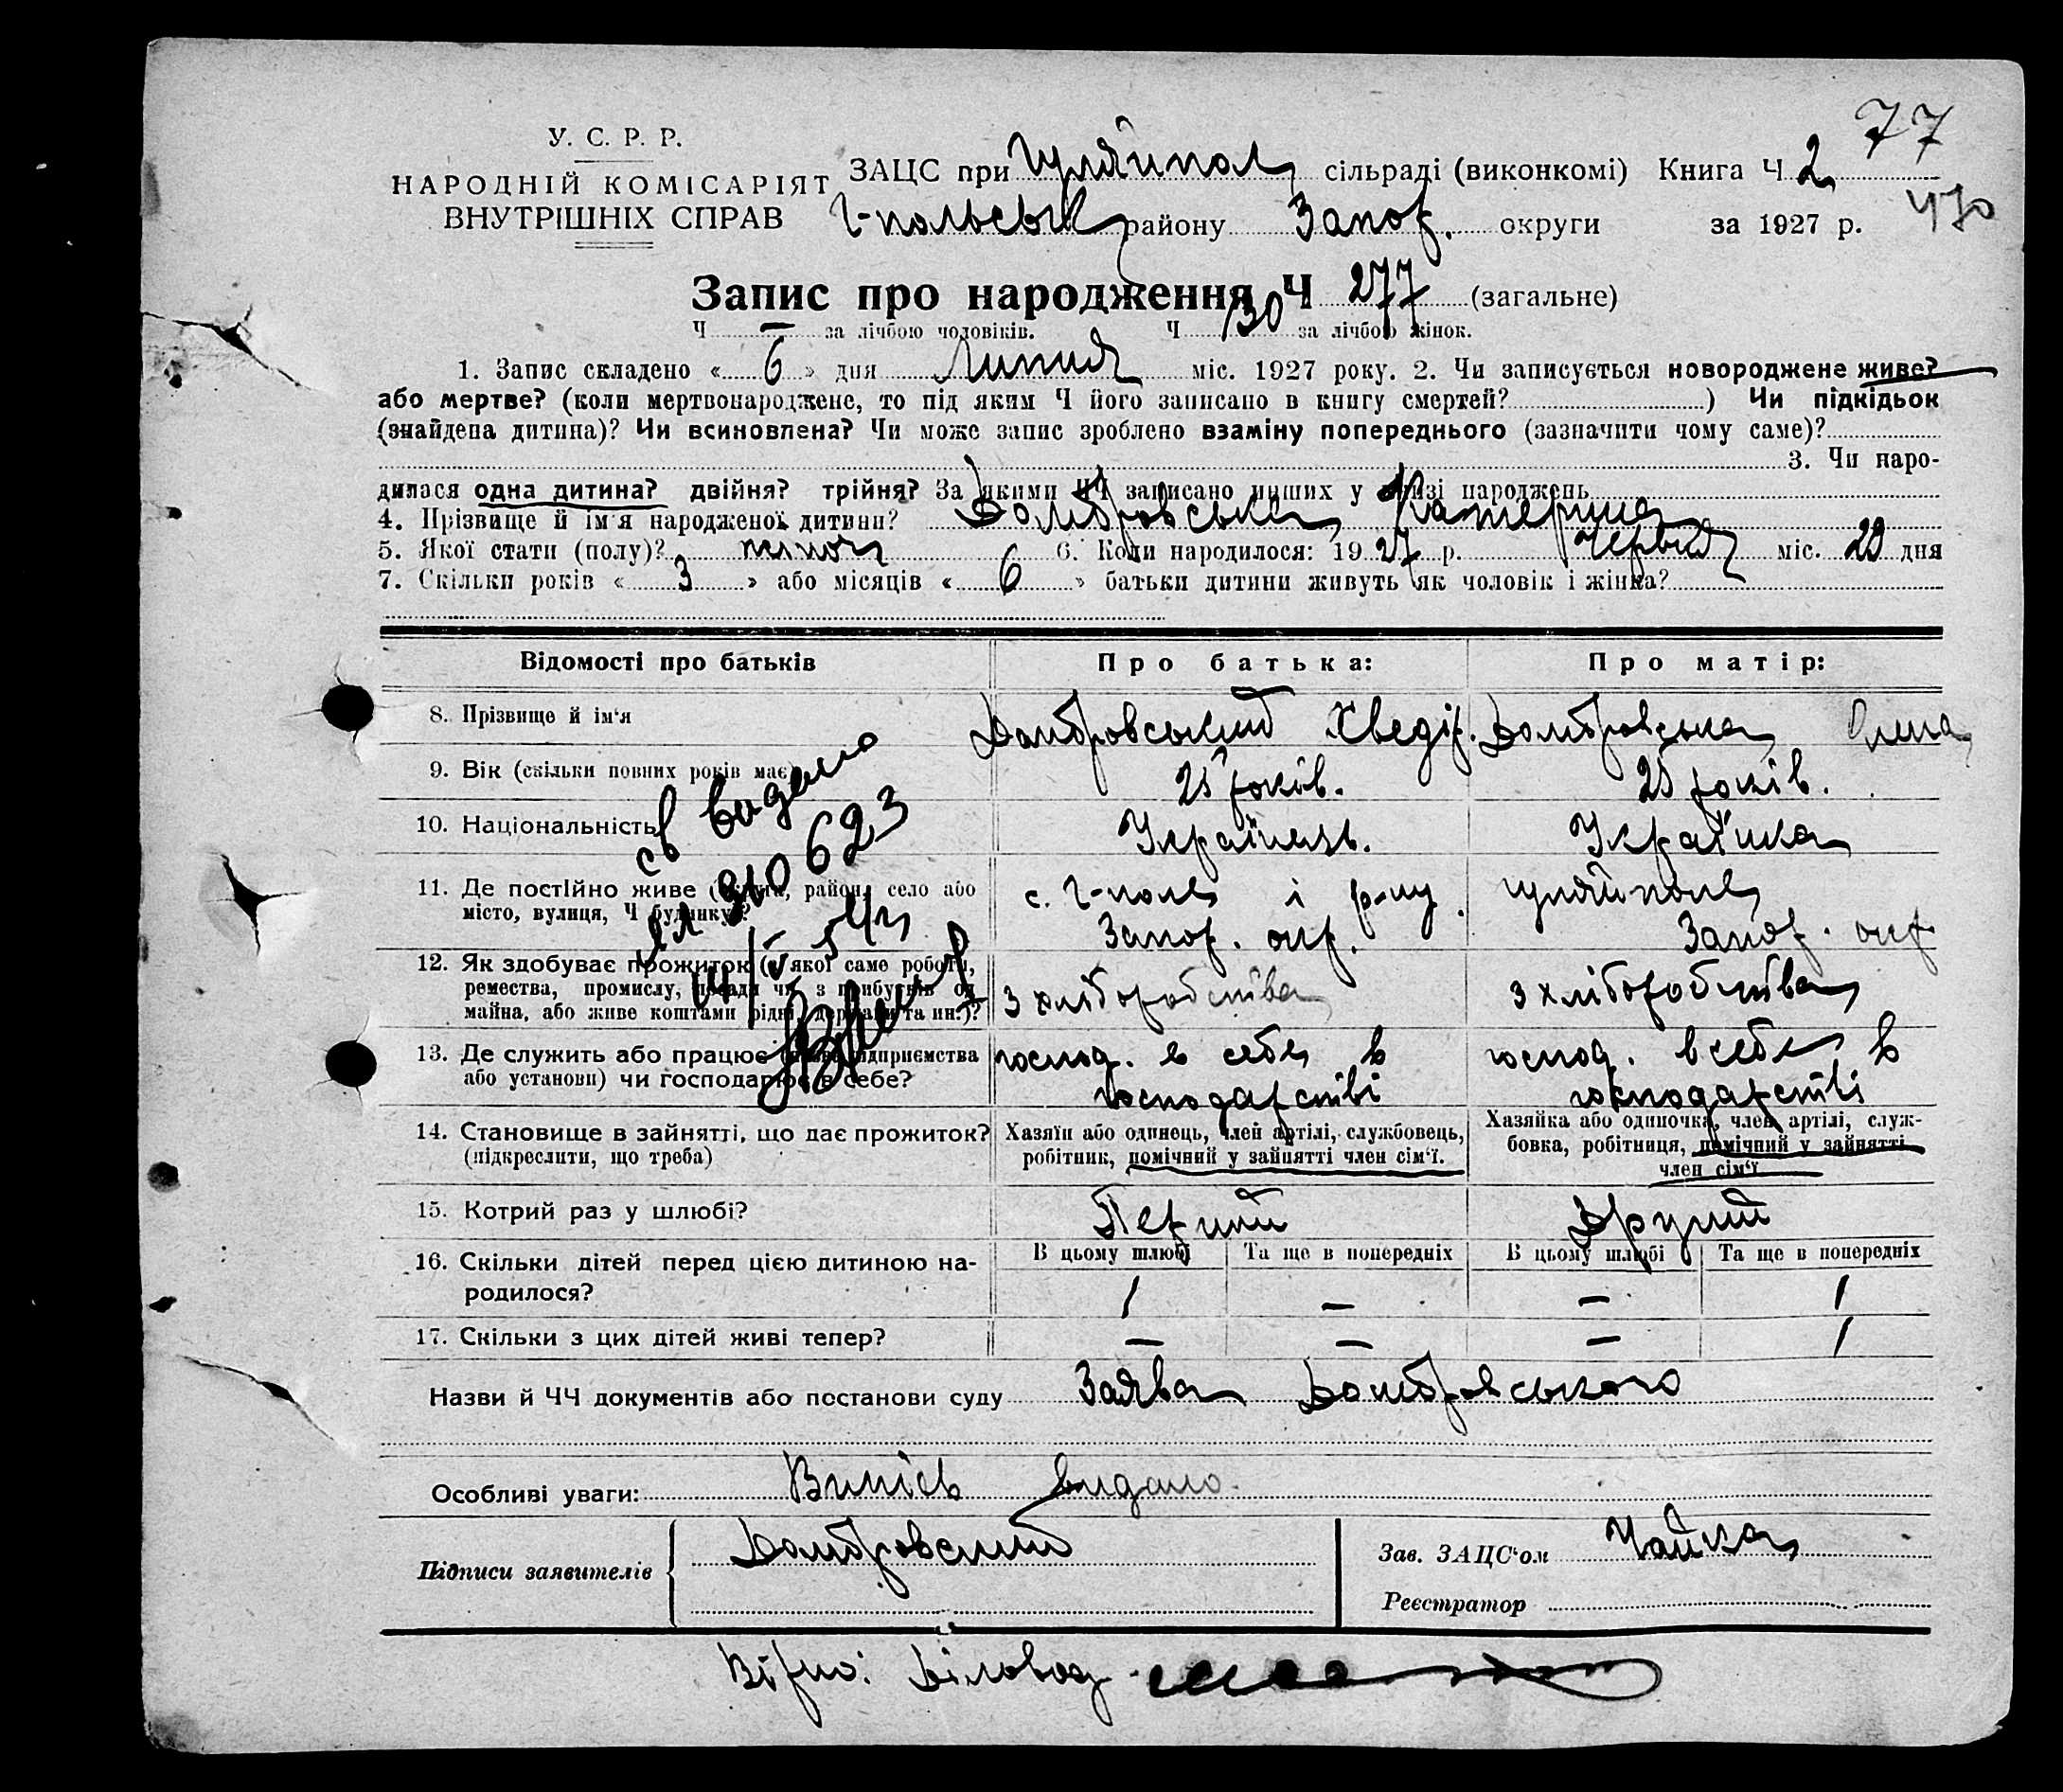 77
У. С. Р. Р.
НАРОДНІЙ КОМІСАРІЯТ
ВНУТРІШНІХ СПРАВ
ЗАЦС при Гуляйпол сільраді (виконкомі) Книга Ч 2
Г-польськ району Запор. округи за 1927 р.
Запис про народження Ч 277 (загальне)
Ч — за лічбою чоловіків. Ч 130 за лічбою жінок.
1. Запис складено «6» дня Липня міс. 1927 року. 2. Чи записується новороджене живе?
або мертве? (коли мертвонароджене, то під яким Ч його записано в книгу смертей?) Чи підкідьок
(знайдена дитина)? Чи всиновлена? Чи може запис зроблено взаміну попереднього (зазначити чому саме)?
3. Чи наро-
дилася одна дитина? двійня? трійня? За якими ЧЧ записано инших у книзі народжень
4. Прізвище й ім'я народженої дитини? Домбровська Катерина
5. Якої стати (полу)? жіноч 6. Коли народилося: 1927 р. Червня міс. 29 дня
7. Скільки років «3» або місяців «6» батьки дитини живуть як чоловік і жінка?
Відомості про батьків Про батька: Про матір:
8. Прізвище й ім'я Домбровський Хведір. Домбровська Олена
9. Вік (скільки повних років має) 25 років. 25 років.
10. Національність Українець. Українка
11. Де постійно живе (округа, район, село або
місто, вулиця, Ч будинку)?
с. Г-поле і р-ну Гуляйполе
Запор. окр. Запор. окр
12. Як здобуває прожиток (з якої саме роботи,
ремества, промислу, посади чи з прибутків од
майна, або живе коштами рідні, держави та ин.)?
з хліборобства з хліборобства
13. Де служить або працює (назва підприємства
або установи) чи господарює в себе?
господ. в себе в господ. в себе в
господарстві господарстві
св видано
910623
14. Становище в зайнятті, що дає прожиток?
(підкреслити, що треба)
Хазяїн або одинець, член артілі, службовець,
робітник, помічний у зайнятті член сім'ї.
Хазяйка або одиночка, член артілі, служ-
бовка, робітниця, помічний у зайнятті
член сім'ї
15. Котрий раз у шлюбі? Перший Другий
16. Скільки дітей перед цією дитиною на-
родилося?
В цьому шлюбі Та ще в попередніх В цьому шлюбі Та ще в попередніх
1 — — 1
17. Скільки з цих дітей живі тепер? — — — 1
Назви й ЧЧ документів або постанови суду Заява Домбровського
Особливі уваги: Випісь видано.
Підписи заявителів Домбровский
Зав. ЗАЦС'ом Чайка
Реєстратор
Вірно: Діловод